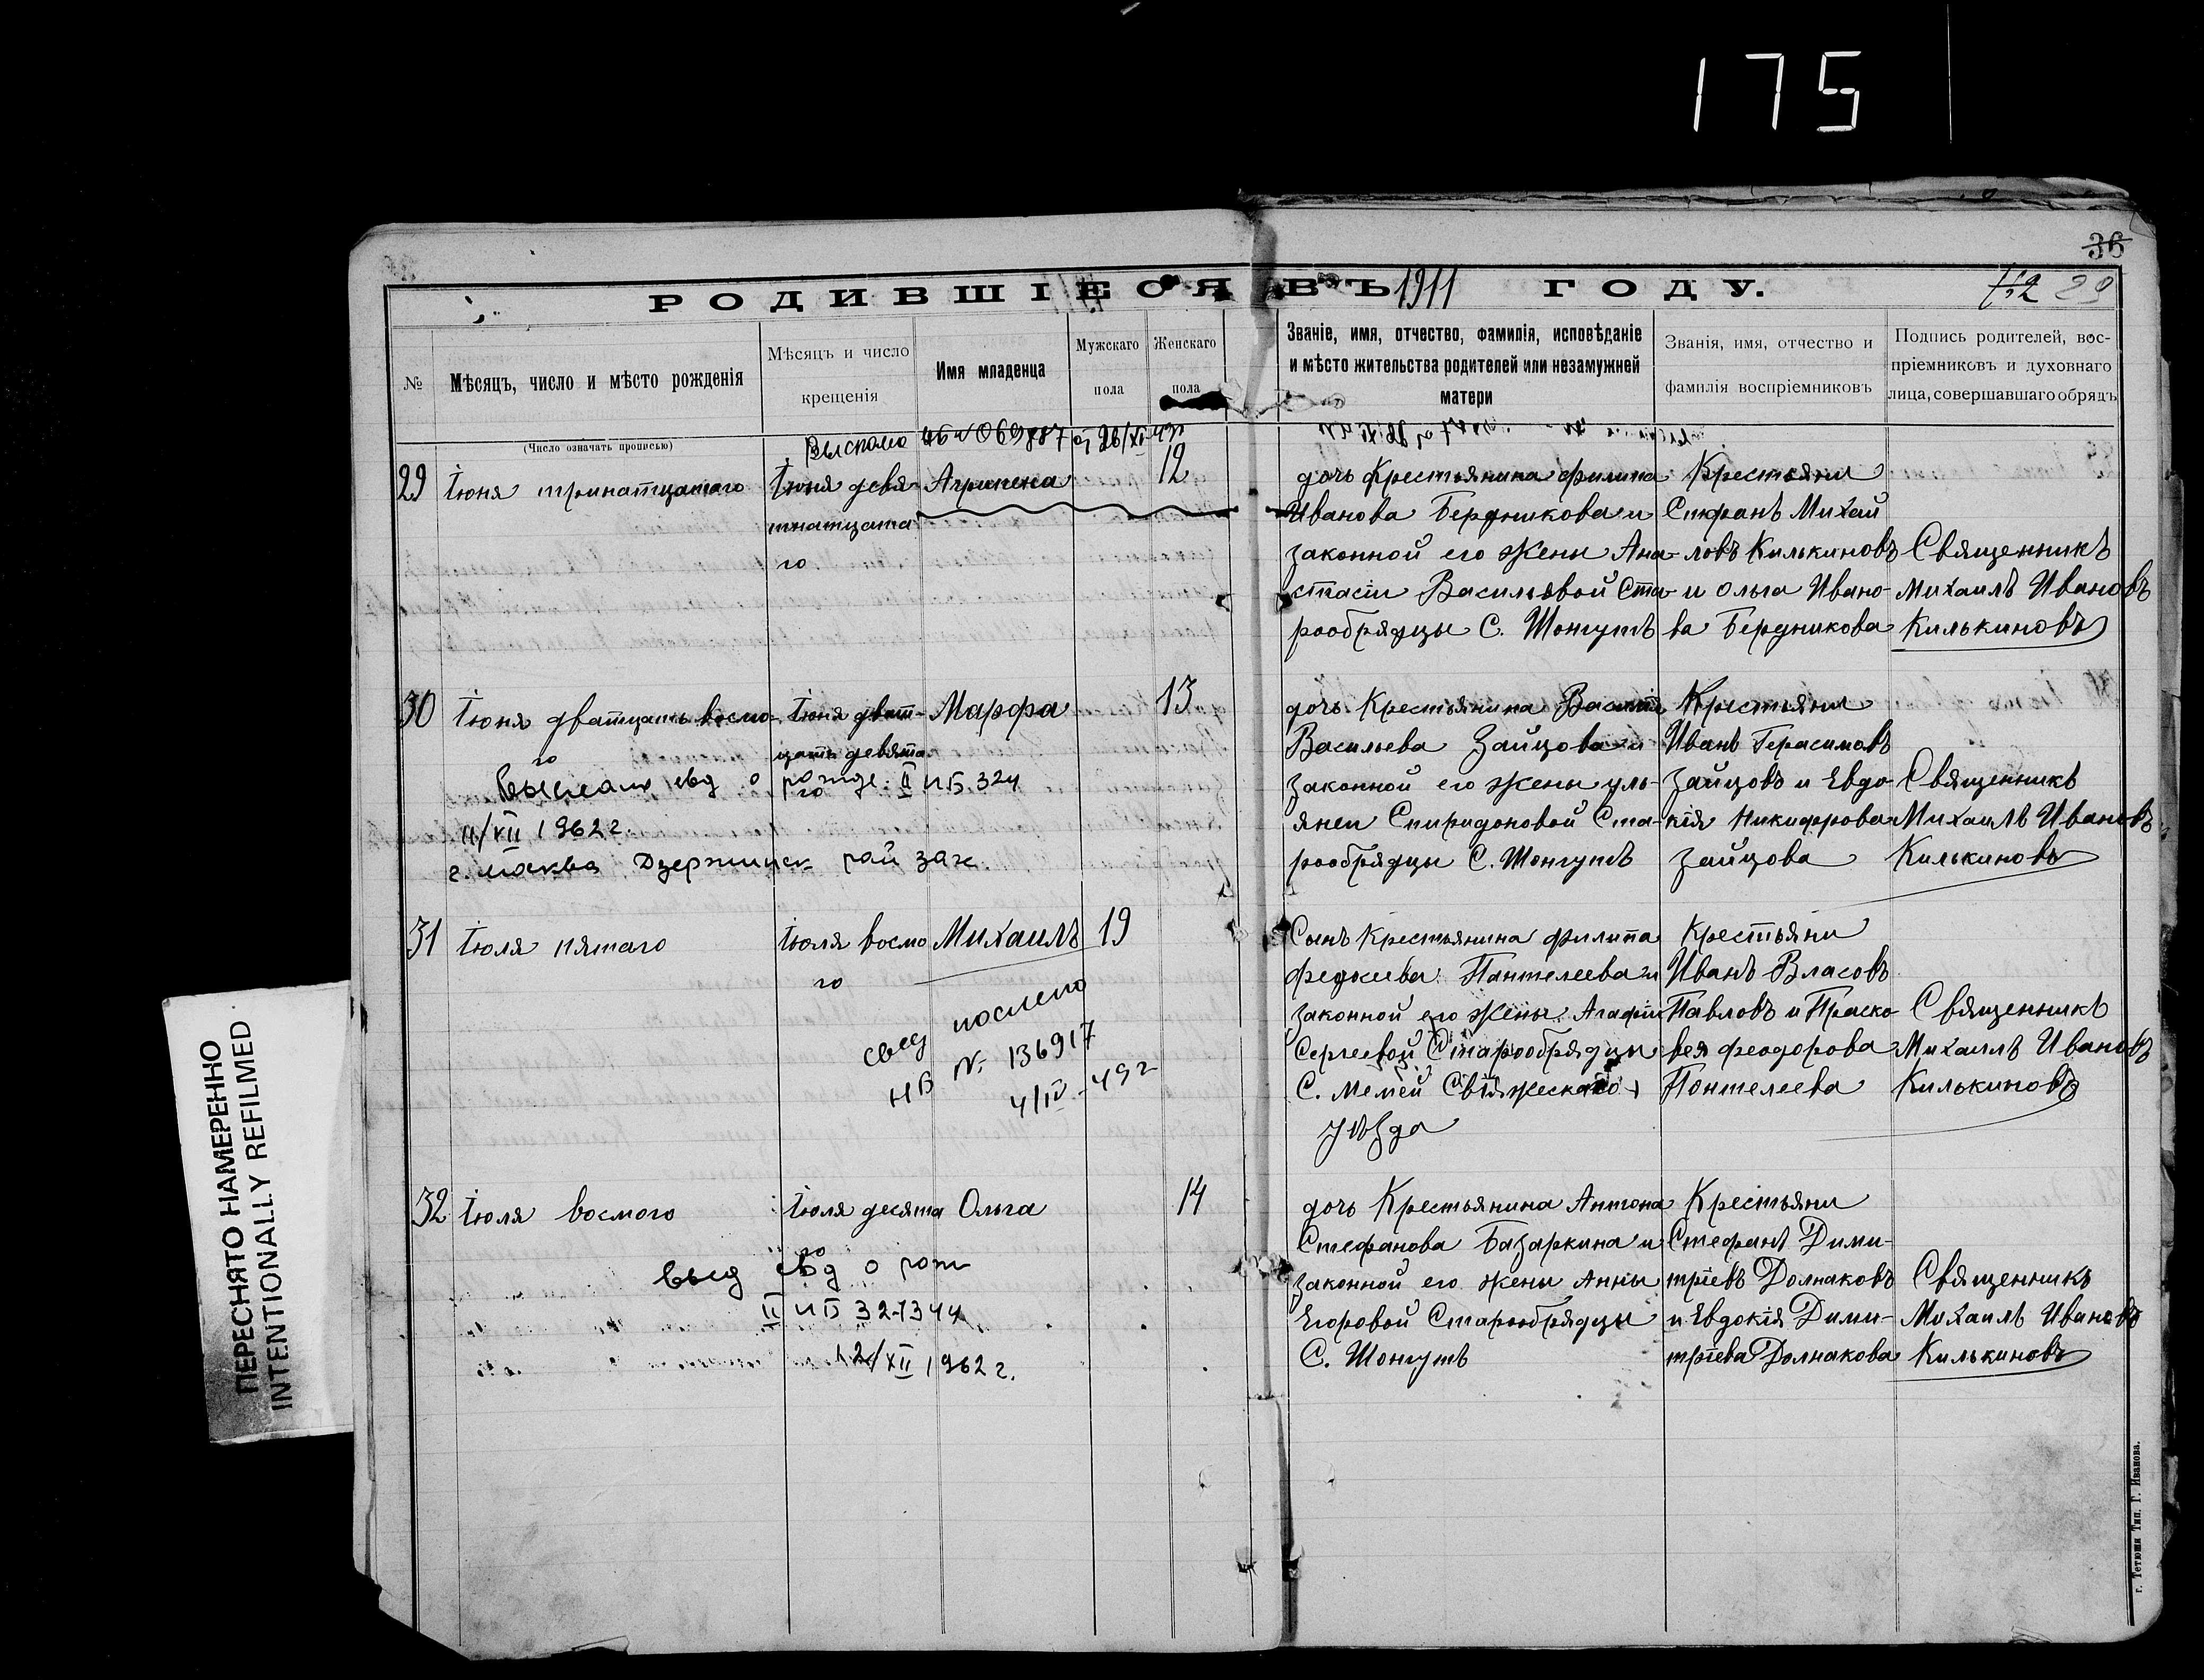 175
36
29
РОДИВШІЕСЯ ВЪ 1911 ГОДУ.
№
Мѣсяцъ, число и мѣсто рожденія
Мѣсяцъ и число
крещенія
Имя младенца
Мужскаго
пола
Женскаго
пола
Званіе, имя, отчество, фамилія, исповѣданіе
и мѣсто жительства родителей или незамужней
матери
Званія, имя, отчество и
фамилія воспріемниковъ
Подпись родителей, вос-
пріемниковъ и духовнаго
лица, совершавшаго обрядъ
(Число означать прописью)
29
Іюня тринатцатаго
Іюня девя-
тнатцата
го
Агрипена
12
дочь Крестьянина Филипа
Иванова Бердникова и
законной его жены Ана-
стасіи Васильевой Ста-
рообрядцы С. Шонгутъ
Крестьяни
Стефанъ Михай
ловъ Килькиновъ
и Ольга Ивано-
ва Бердникова
Священникъ
Михаилъ Ивановъ
Килькиновъ
30
Іюня дватцать восмо-
го
Іюня дват-
цать девята
го
Марфа
13
II ИБ 324
11/XII 1962 г.
г. Москва Дзержинск рай заг.
дочь Крестьянина Василія
Васильева Зайцова и
законной его жены Уль-
янеи Спиридоновой Ста-
рообрядцы С. Шонгутъ
Крестьяни
Иванъ Герасимовъ
Зайцовъ и Евдо-
кія Никифорова
Зайцова
Священникъ
Михаилъ Ивановъ
Килькиновъ
31
Іюля пятаго
Іюля восмо
го
Михаилъ
19
свид послано
НВ № 136917
4/IV-49 г
Сынъ Крестьянина Филипа
Федосеева Пантелеева и
законной его жены Агафіи
Сергеевой Старообрядцы
С. Мемей Свіяжескаго
уѣзда
Крестьяни
Иванъ Власовъ
Павловъ и Праско
вея Феодорова
Понтелеева
Священникъ
Михаилъ Ивановъ
Килькиновъ
32
Іюля восмого
Іюля десята
го
Ольга
14
выд свд о рож
II ИБ
12/XII 1962 г.
дочь Крестьянина Антона
Стефанова Базаркина и
законной его жены Анны
Егоровой Старообрядцы
С. Шонгутъ
Крестьяни
Стефанъ Дими-
тріевъ Долнаковъ
и Евдокія Дими-
тріева Долнакова
Священникъ
Михаилъ Ивановъ
Килькиновъ
г. Тетюши Тип. Г. Иванова.
ПЕРЕСНЯТО НАМЕРЕННО
INTENTIONALLY REFILMED